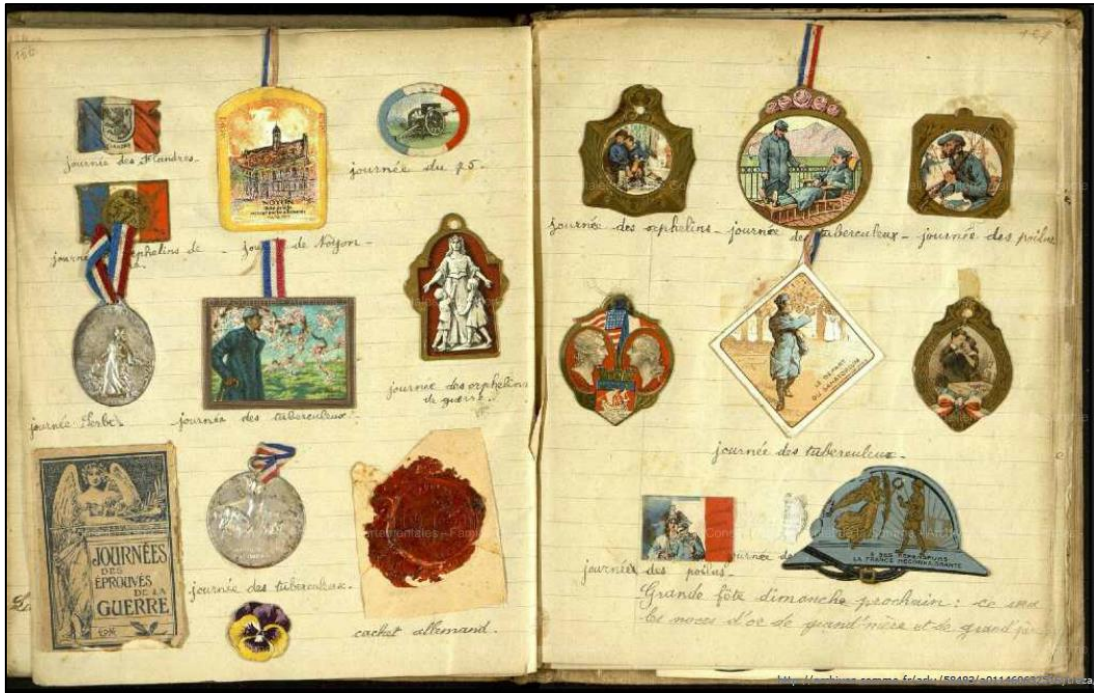 166
journée des Flandres.
NOYON
journée du 75.
journée
orphelins de
de Noyon
journée Serbe
journée des tuberculeux.
journée des orphelins
de guerre.
JOURNÉES
DES
ÉPROUVÉS
DE LA
GUERRE
journée des tuberculeux.
cachet allemand.
journée des orphelins - journée des tuberculeux - journée des poilus
LE DÉPART
DU SANATORIUM
journée des tuberculeux.
LA FRANCE RECONNAISSANTE
journée des poilus.
journée de
Grande fête dimanche prochain : ce sera
les noces d'or de grand'mère et de grand